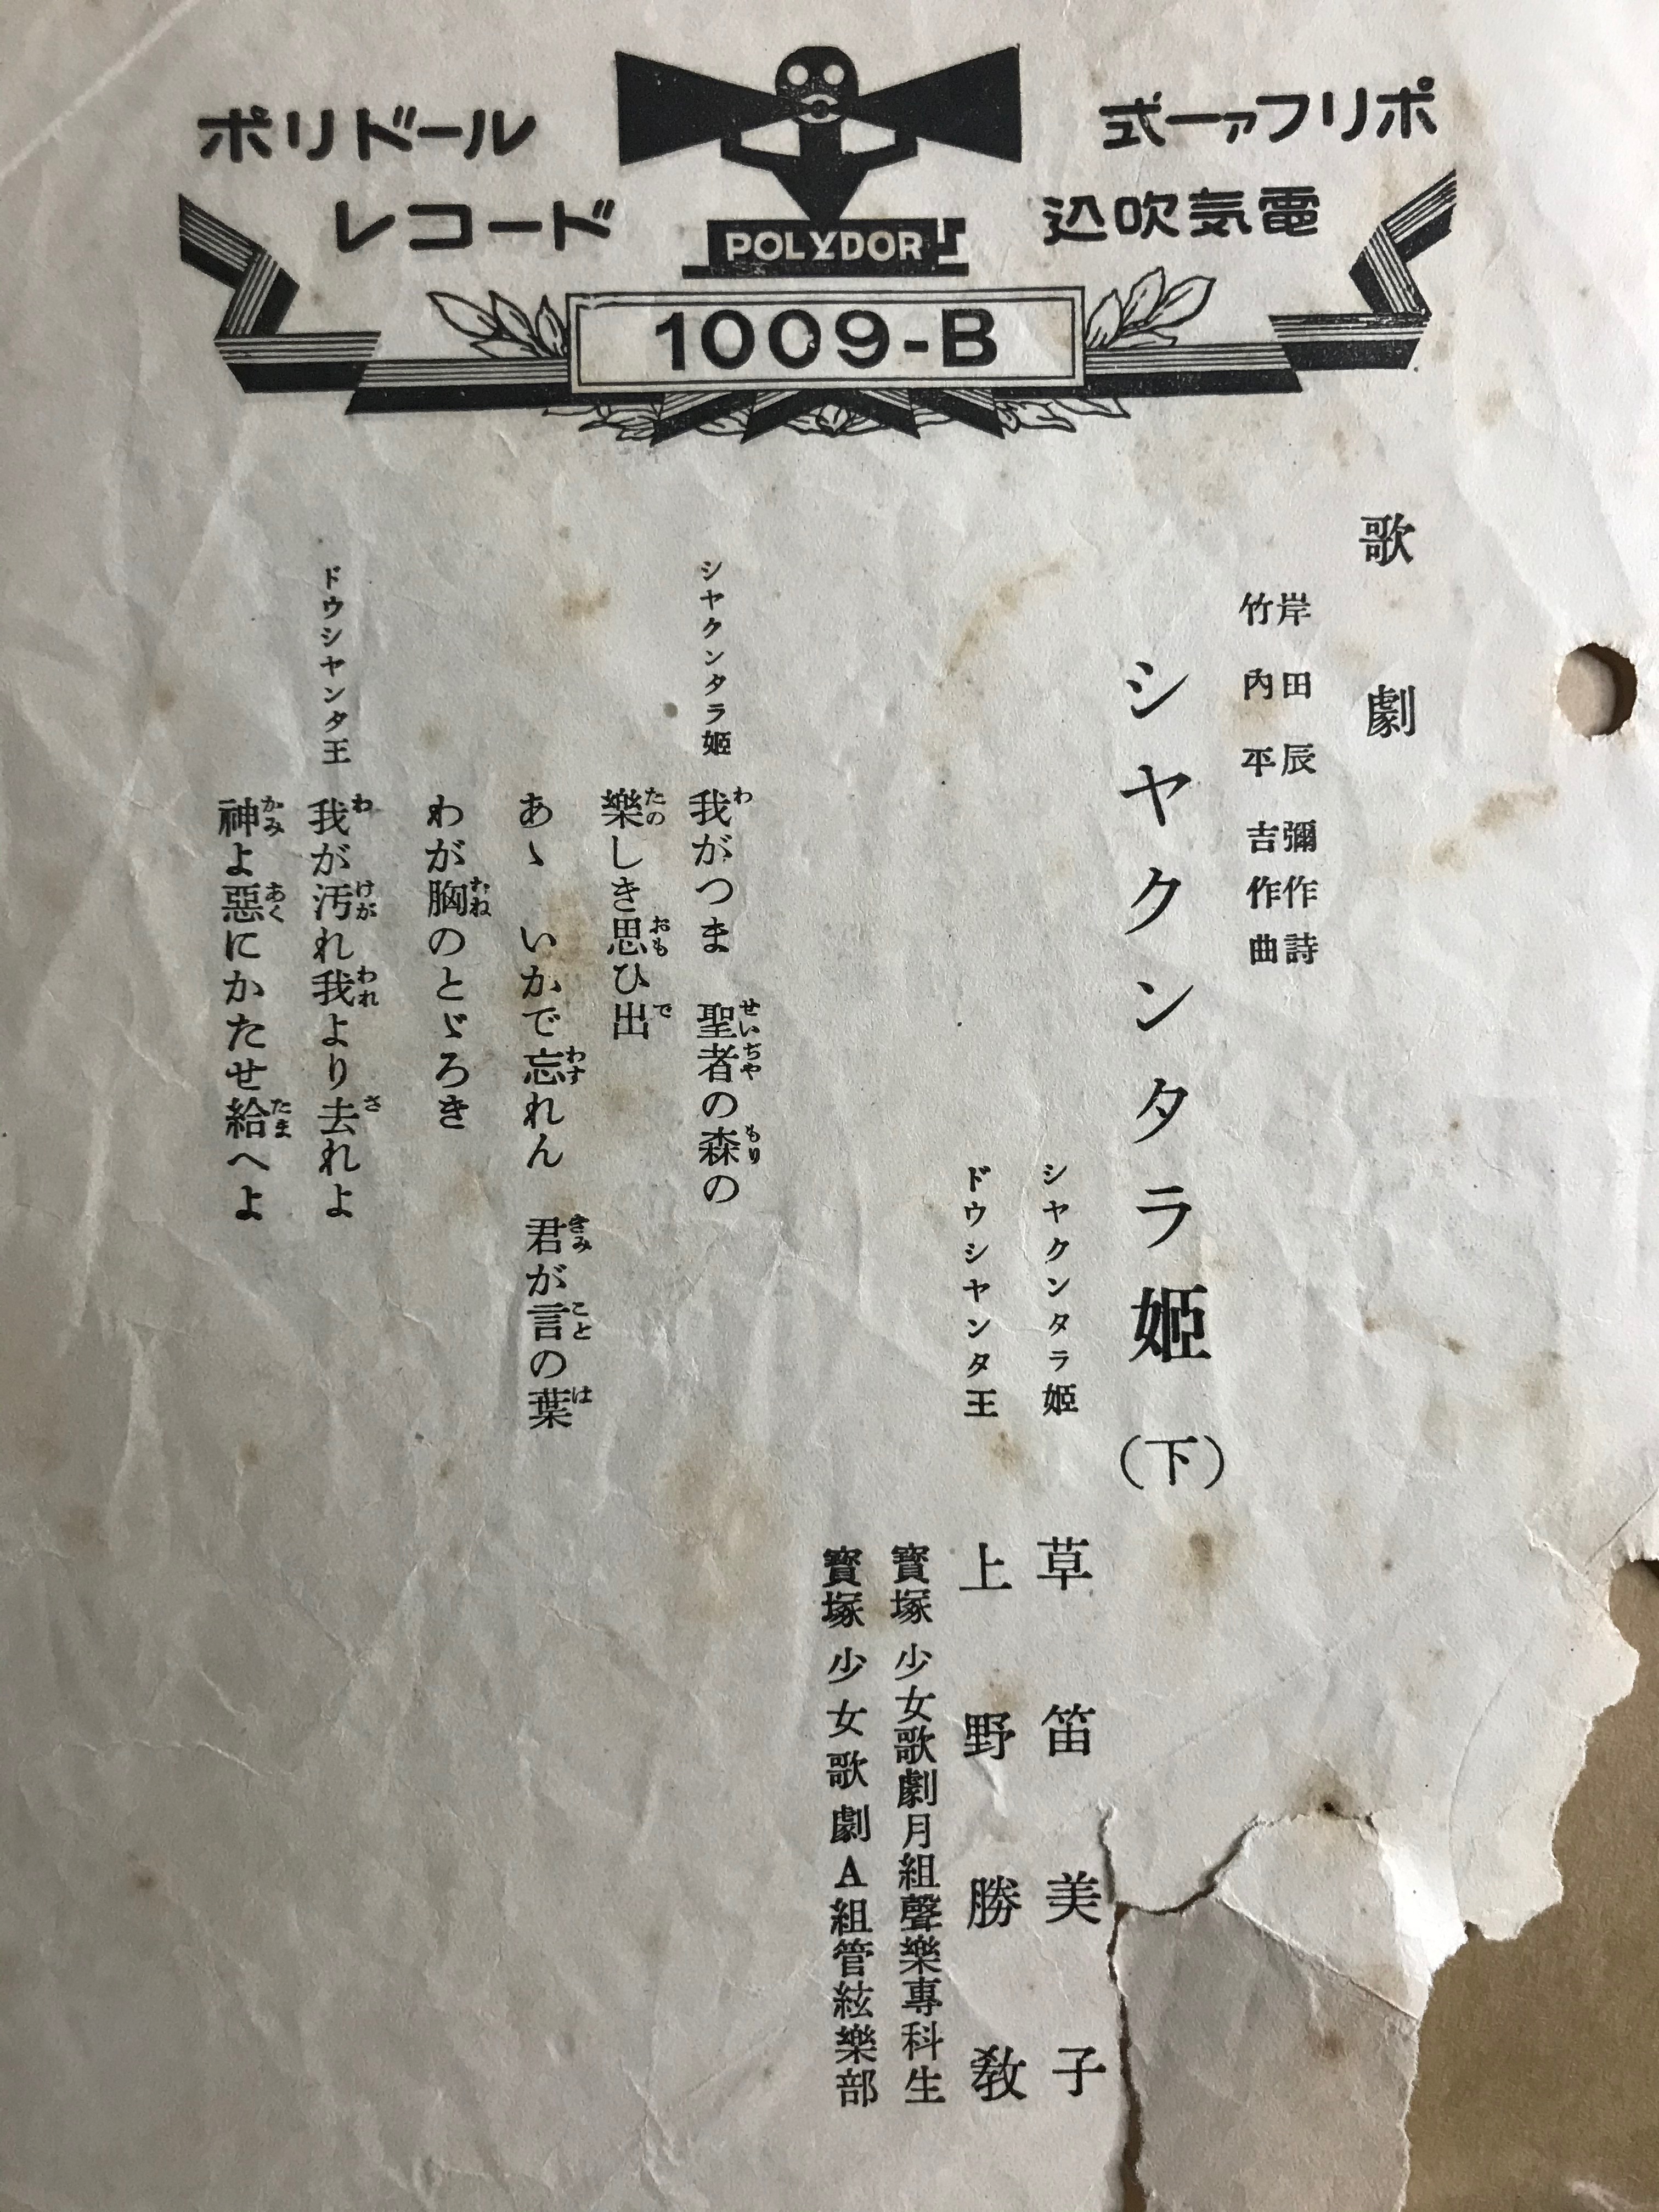 ポリドール
レコード
式ーァフリポ
込吹気電
POLYDOR
1009-B
歌劇
岸田辰彌作詩
竹内平吉作曲
シヤクンタラ姫（下）
シヤクンタラ姫 草笛美子
ドウシヤンタ王 上野勝敎
寳塚少女歌劇月組聲樂專科生
寳塚少女歌劇A組管絃樂部
シヤクンタラ姫 我がつま 聖者の森の
樂しき思ひ出
あゝ いかで忘れん 君が言の葉
わが胸のとゞろき
ドウシヤンタ王 我が汚れ我より去れよ
神よ惡にかたせ給へよ